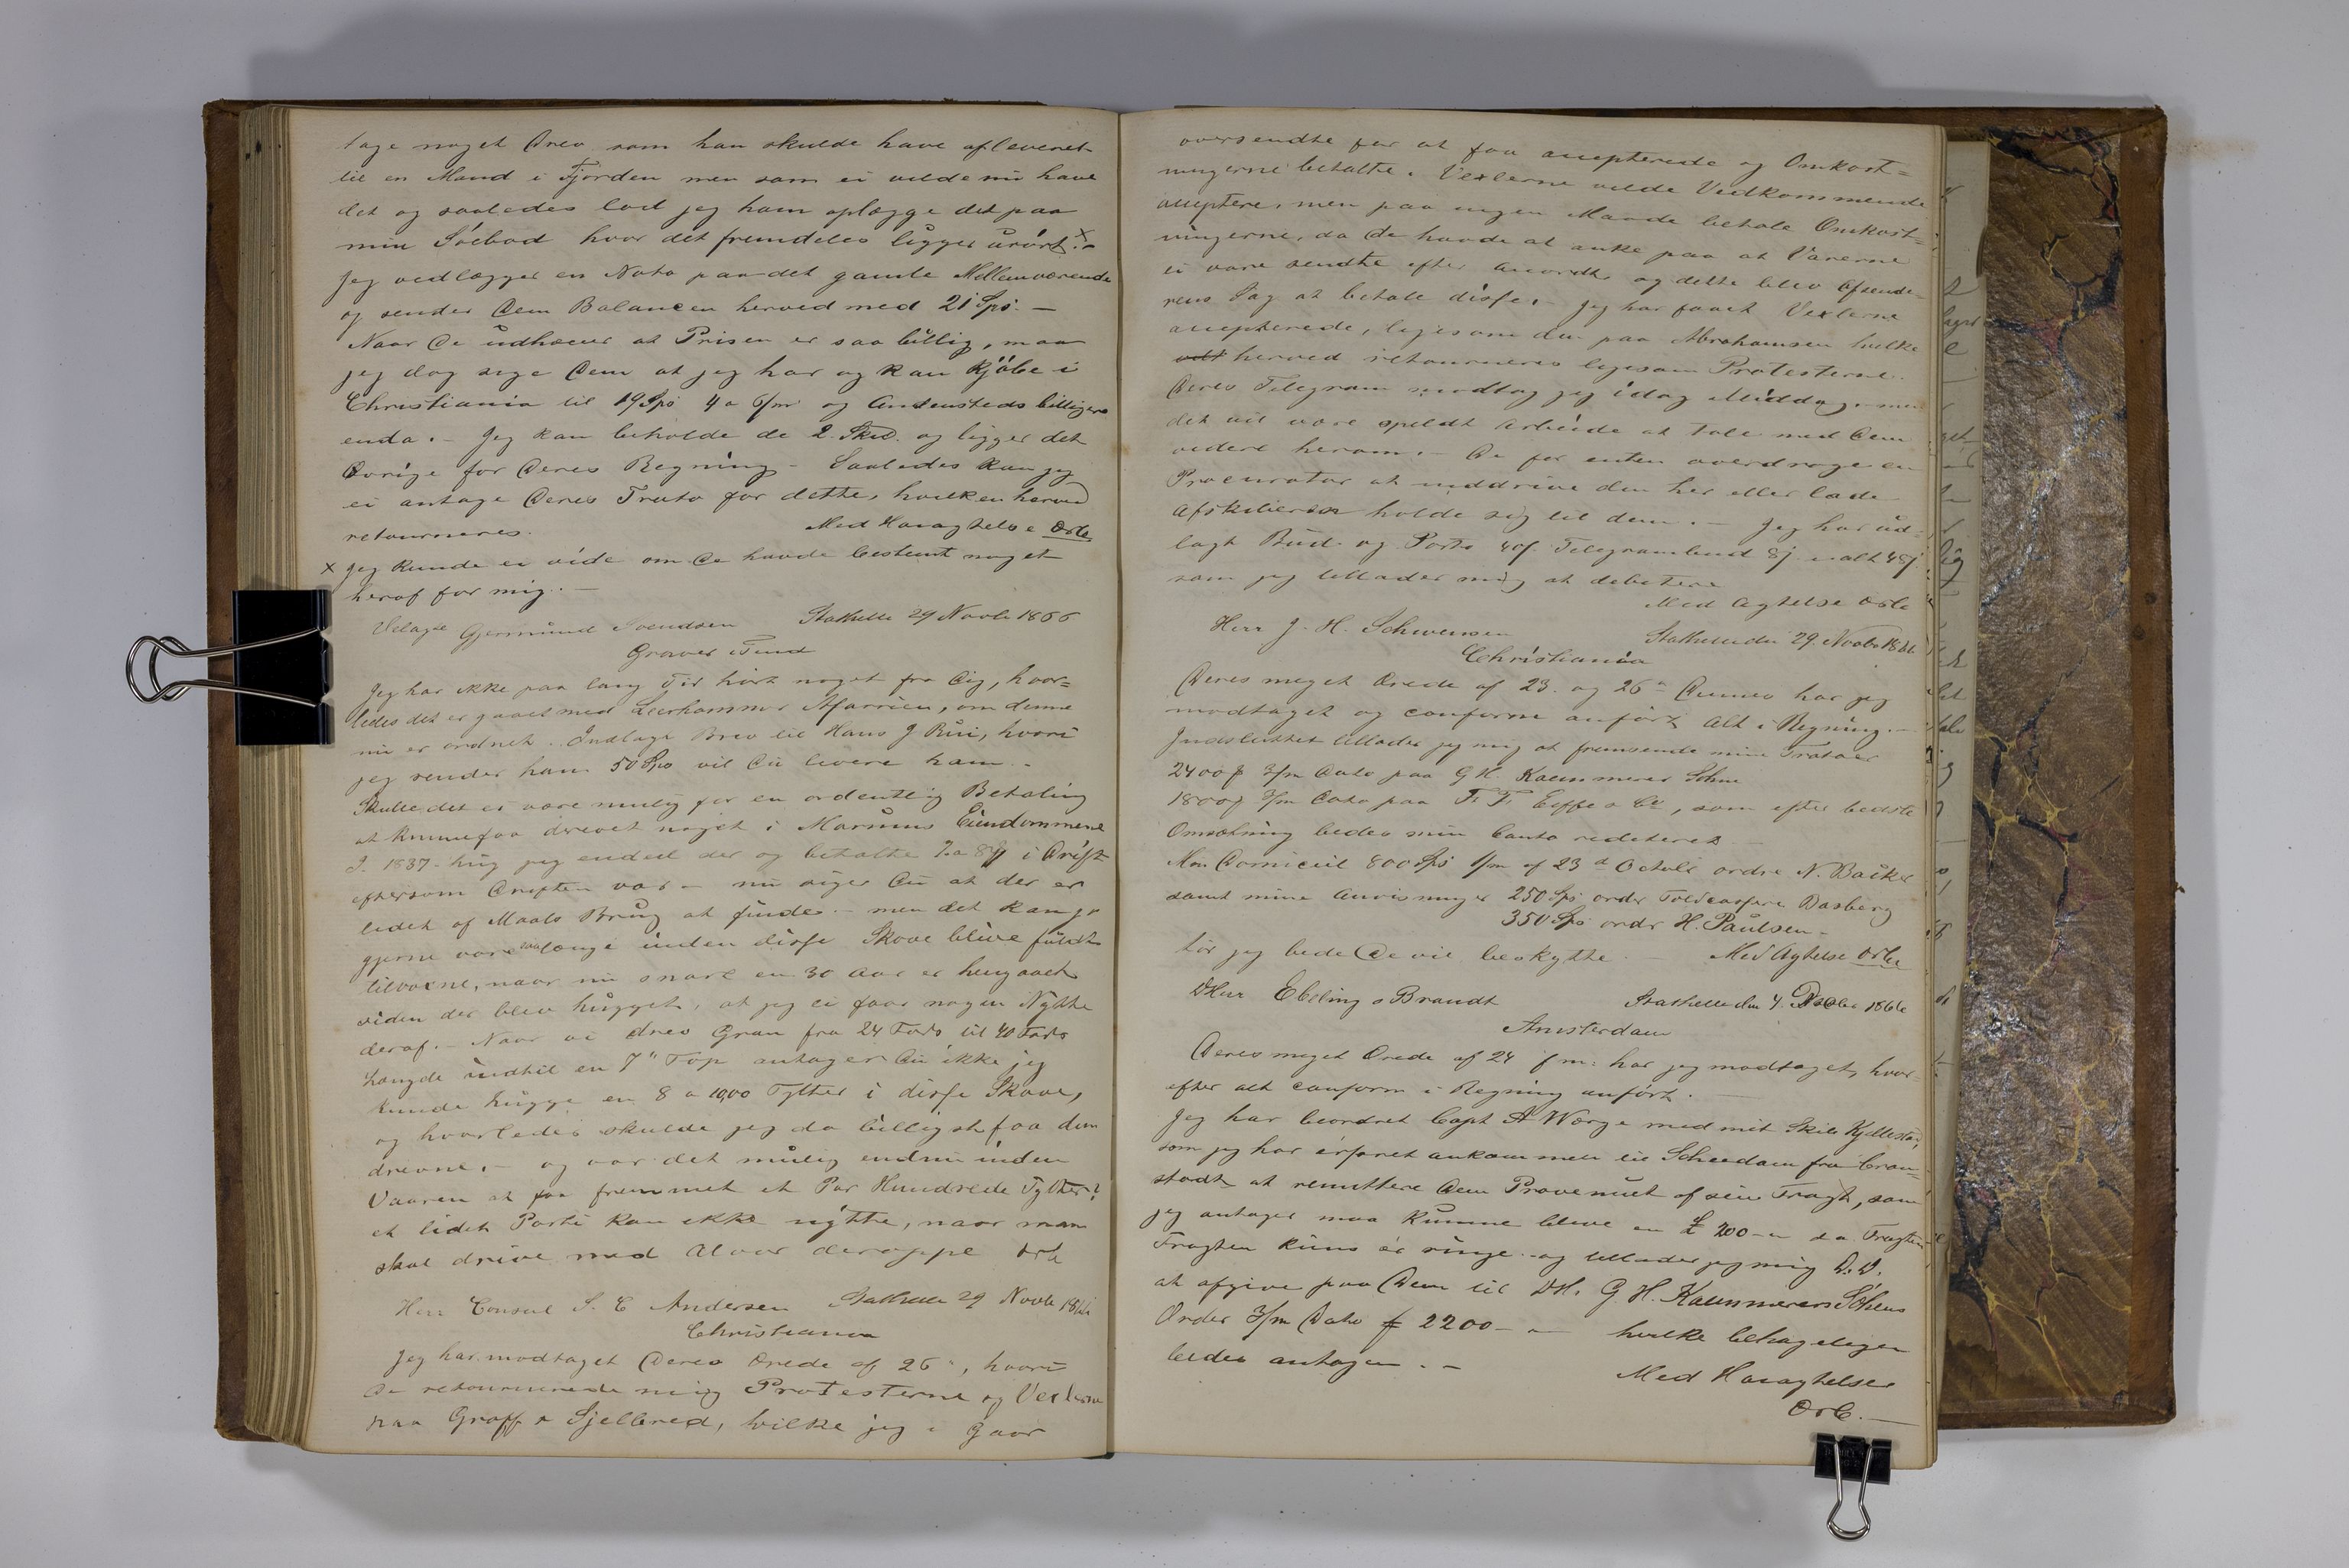 tage noget Brev som han skulde have afleveret
til en Mand i Fjorden men som ei vilde nu have
det og saaledes lod jeg ham oplægge det paa
min Söebod hvor det fremdeles ligger urört. x
Jeg vedlægger en Nota paa det gamle Mellemværende
og sender Dem Balancen herved med 21 Sps. —
Naar De udhæver at Prisen er saa billig, maa
jeg dog sige Dem at jeg har og kan kjöbe i
Christiania til 19 Sps 4 a 6/m og Andensteds billigere
enda. — Jeg kan beholde de 2. og ligger det
Övrige for Deres Regning — Saaledes kan jeg
ei antage Deres Tratte for dette, hvilken herved
retourneres. Med Höiagtelse
x Jeg kunde ei vide om De havde bestemt noget
heraf for mig. —
Gjermund Svendsen Stathelle 29 Novbr 1866
Graver Tind
Jeg har ikke paa lang Tid hört noget fra Dig, hvor=
ledes det er gaaet med Affairien, om denne
nu er ordnet. Indlagte Brev til Hans J Rui, hvori
jeg sender ham 50 Sps vil Du levere ham. —
Skulle det ei være mulig for en ordentlig Betaling
at kunne faa drevet noget i Eiendommene
I 1837 hug jeg endeel der og betalte i Drift
eftersom Driften var — nu siger Du at der er
lidet af Maals Brug at finde. — men det kan jo
gjerne være saalænge inden disse Skove blive fuldt
tilvoxne, naar nu snart en 30 Aar er hengaaet
siden der blev hugget, at jeg ei faar nogen Nytte
deraf. — Naar vi drev Gran fra 24 Fods til 40 Fods
Længde indtil en 7" Top antager Du ikke jeg
kunde hugge en 8 a 1000 Tylter i disse Skove,
og hvorledes skulde jeg da billigst faa dem
drevne. — og var det mulig endnu inden
Vaaren at faa fremmet et Par Hundrede Tylter?
et lidet Parti kan ikke nytte, naar man
skal drive med Alvor deroppe
Herr Consul S. E Andersen Stathelle 29 Novbr 1866
Christiania
Jeg har modtaget Deres Ærede af 26", hvori
De retournerede mig Protesterne og Vexlerne
paa Groff & Sjellered, hvilke jeg i Gaar
oversendte for at faa accepterede og Omkost=
ningerne betalte. Vexlerne vilde Vedkommende
acceptere, men paa ingen Maade betale Omkost=
ningerne, da de havde at anke paa at Varerne
ei vare sendte efter Accordt, og dette blev Afsende=
rens Sag at betale disse. — Jeg har faaet Vexlerne
accepterede, ligesom den paa Abrahamsen hvilke
herved retourneres ligesom Protesterne.
Deres Telegram modtog jeg idag Middag, men
det vil være spildt Arbeide at tale med Dem
videre herom. — De for enten overdrage en
Procurator at inddrive den her eller lade
Afskiberen holde sig til dem. — Jeg har ud=
lagt Bud og Porto 40 f Telegrambud 8 f ialt 48 f
som jeg tillader mig at debitere
Med Agtelse
Herr J. H. Schwensen Stathelle den 29. Novbr 1866
Christiania
Deres meget Ærede af 23. og 26" Dennes har jeg
modtaget og conform anfört Alt i Regning. —
Indsluttet tillader jeg mig at fremsende mine Trataer
2400 f 3/m Dato paa G H. Kaemmerer Sohne
1800 f 3/m Dato paa F. F. Eiffe & Co, som efter bedste
Omsætning bedes min Conto rediteret —
Mon Domicil 800 Sps 1/m af 23 d Octobr ordre N. Backer
samt mine Anvisninger 250 Sps ordre Toldcasserer Dasberg
350 Sps ordr H. Paulsen —
tör jeg bede De vil beskytte. — Med Agtelse
DHerr Ebeling & Brandt Stathelle den 4. Decbr 1866
Amsterdam
Deres meget Ærede af 24 f m: har jeg modtaget, hvor=
efter alt conform i Regning anfört. —
Jeg har beordret Capt A Wærge med mit Skib
som jeg har erfaret ankommen til Schiedam fra Cron=
stadt at remittere Dem Provenuet af sin Fragt, som
jeg antager maa kunne blive en £ 200 — da Fragten
Fragten kuns er ringe — og tillader jeg mig D. D.
at afgive paa Dem til DH. G. H. Kaemmerers Söhens
Order 3/m Dato f 2200 — hvilke behageligen
bedes antagen. —
Med Höiagtelse